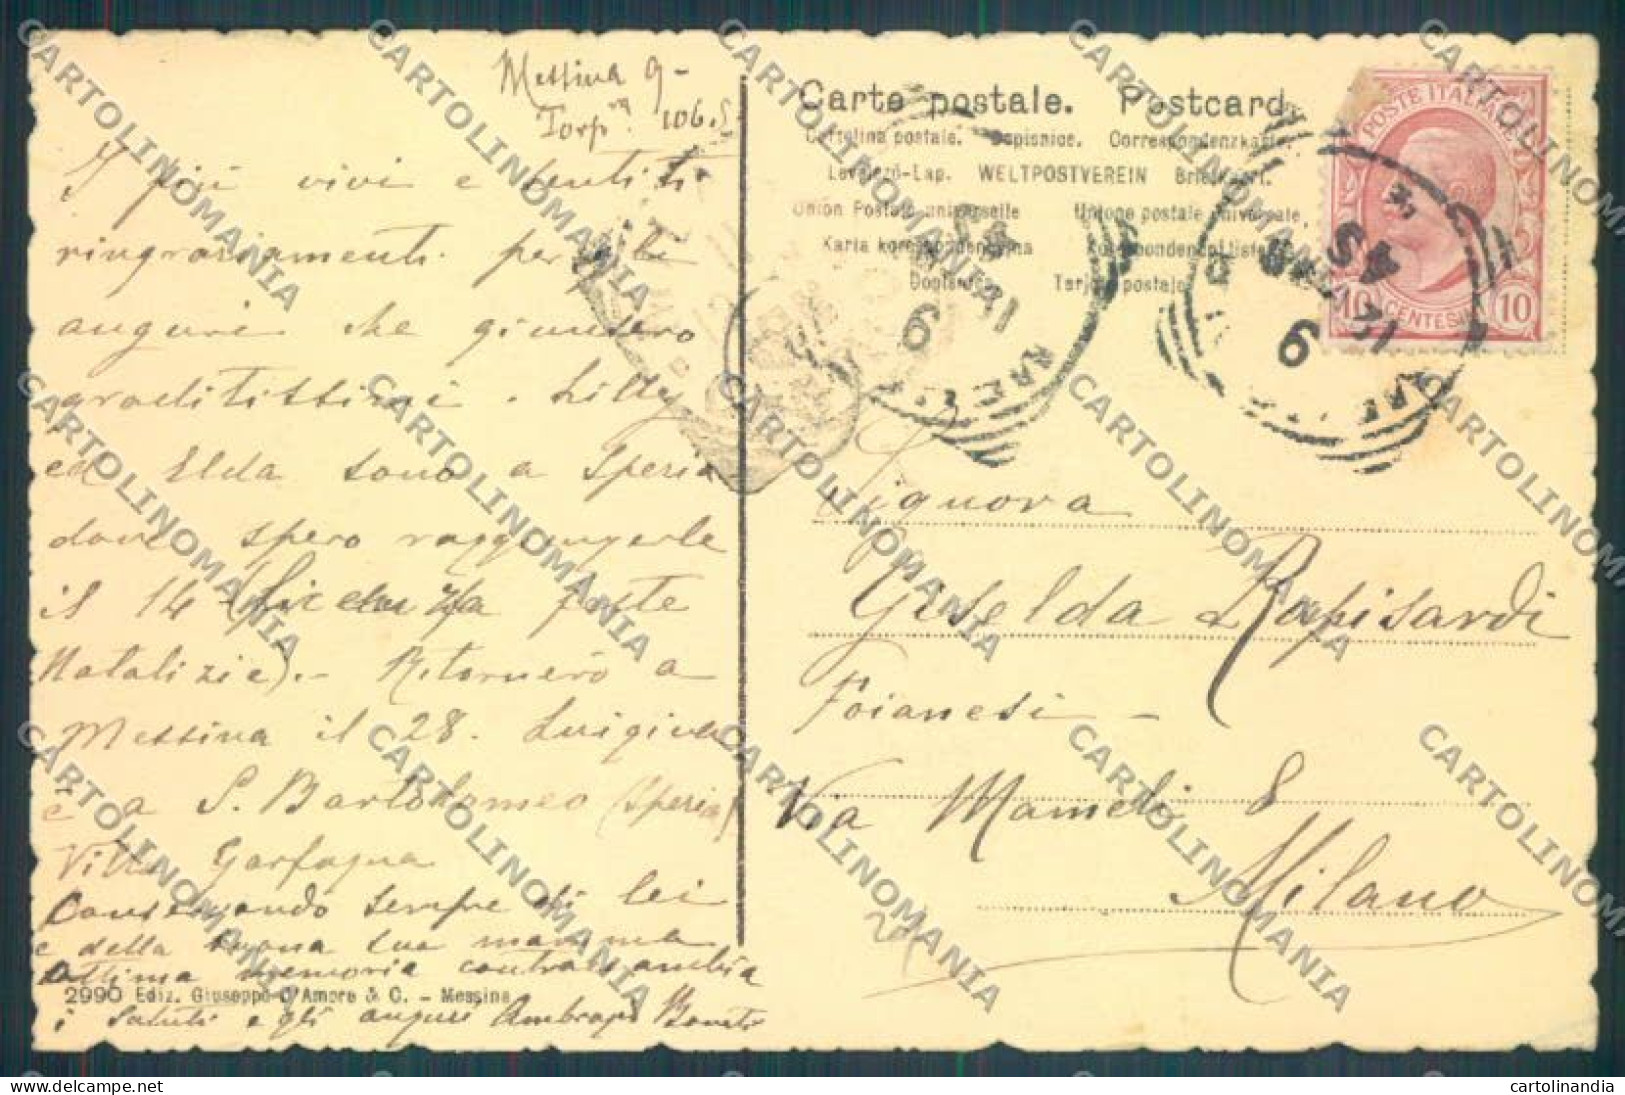 Messina 9-
Torp.na 106.S
I più vivi e sentiti
ringraziamenti per gli
auguri che giunsero
graditissimi. Lilly
ed Elda sono a Speria
dove spero raggiungerle
il 14 (licenza feste
Natalizie).- Ritornerò a
Messina il 28. Luigina
è a S. Bartolomeo (Speria)
Villa Garfagna
Conservando sempre di lei
e della buona sua mamma
ottima memoria contraccambia
i saluti e gli auguri Ambrogio
2990 Ediz. Giuseppe D'Amore & C. - Messina
Carte postale. Postcard.
Cartolina postale. Dopisnice. Correspondenzkarte.
Levelező-Lap. WELTPOSTVEREIN Brefkaart.
Union Postale universelle Unione postale universale.
Karta korespondencyjna
Dopisnica Tarjeta postale
POSTE ITALIANE
10 CENTESIMI 10
Signora
Giselda Rapisardi
Foianesi -
Via Mameli 8
Milano
CARTOLINOMANIA
cartolinandia